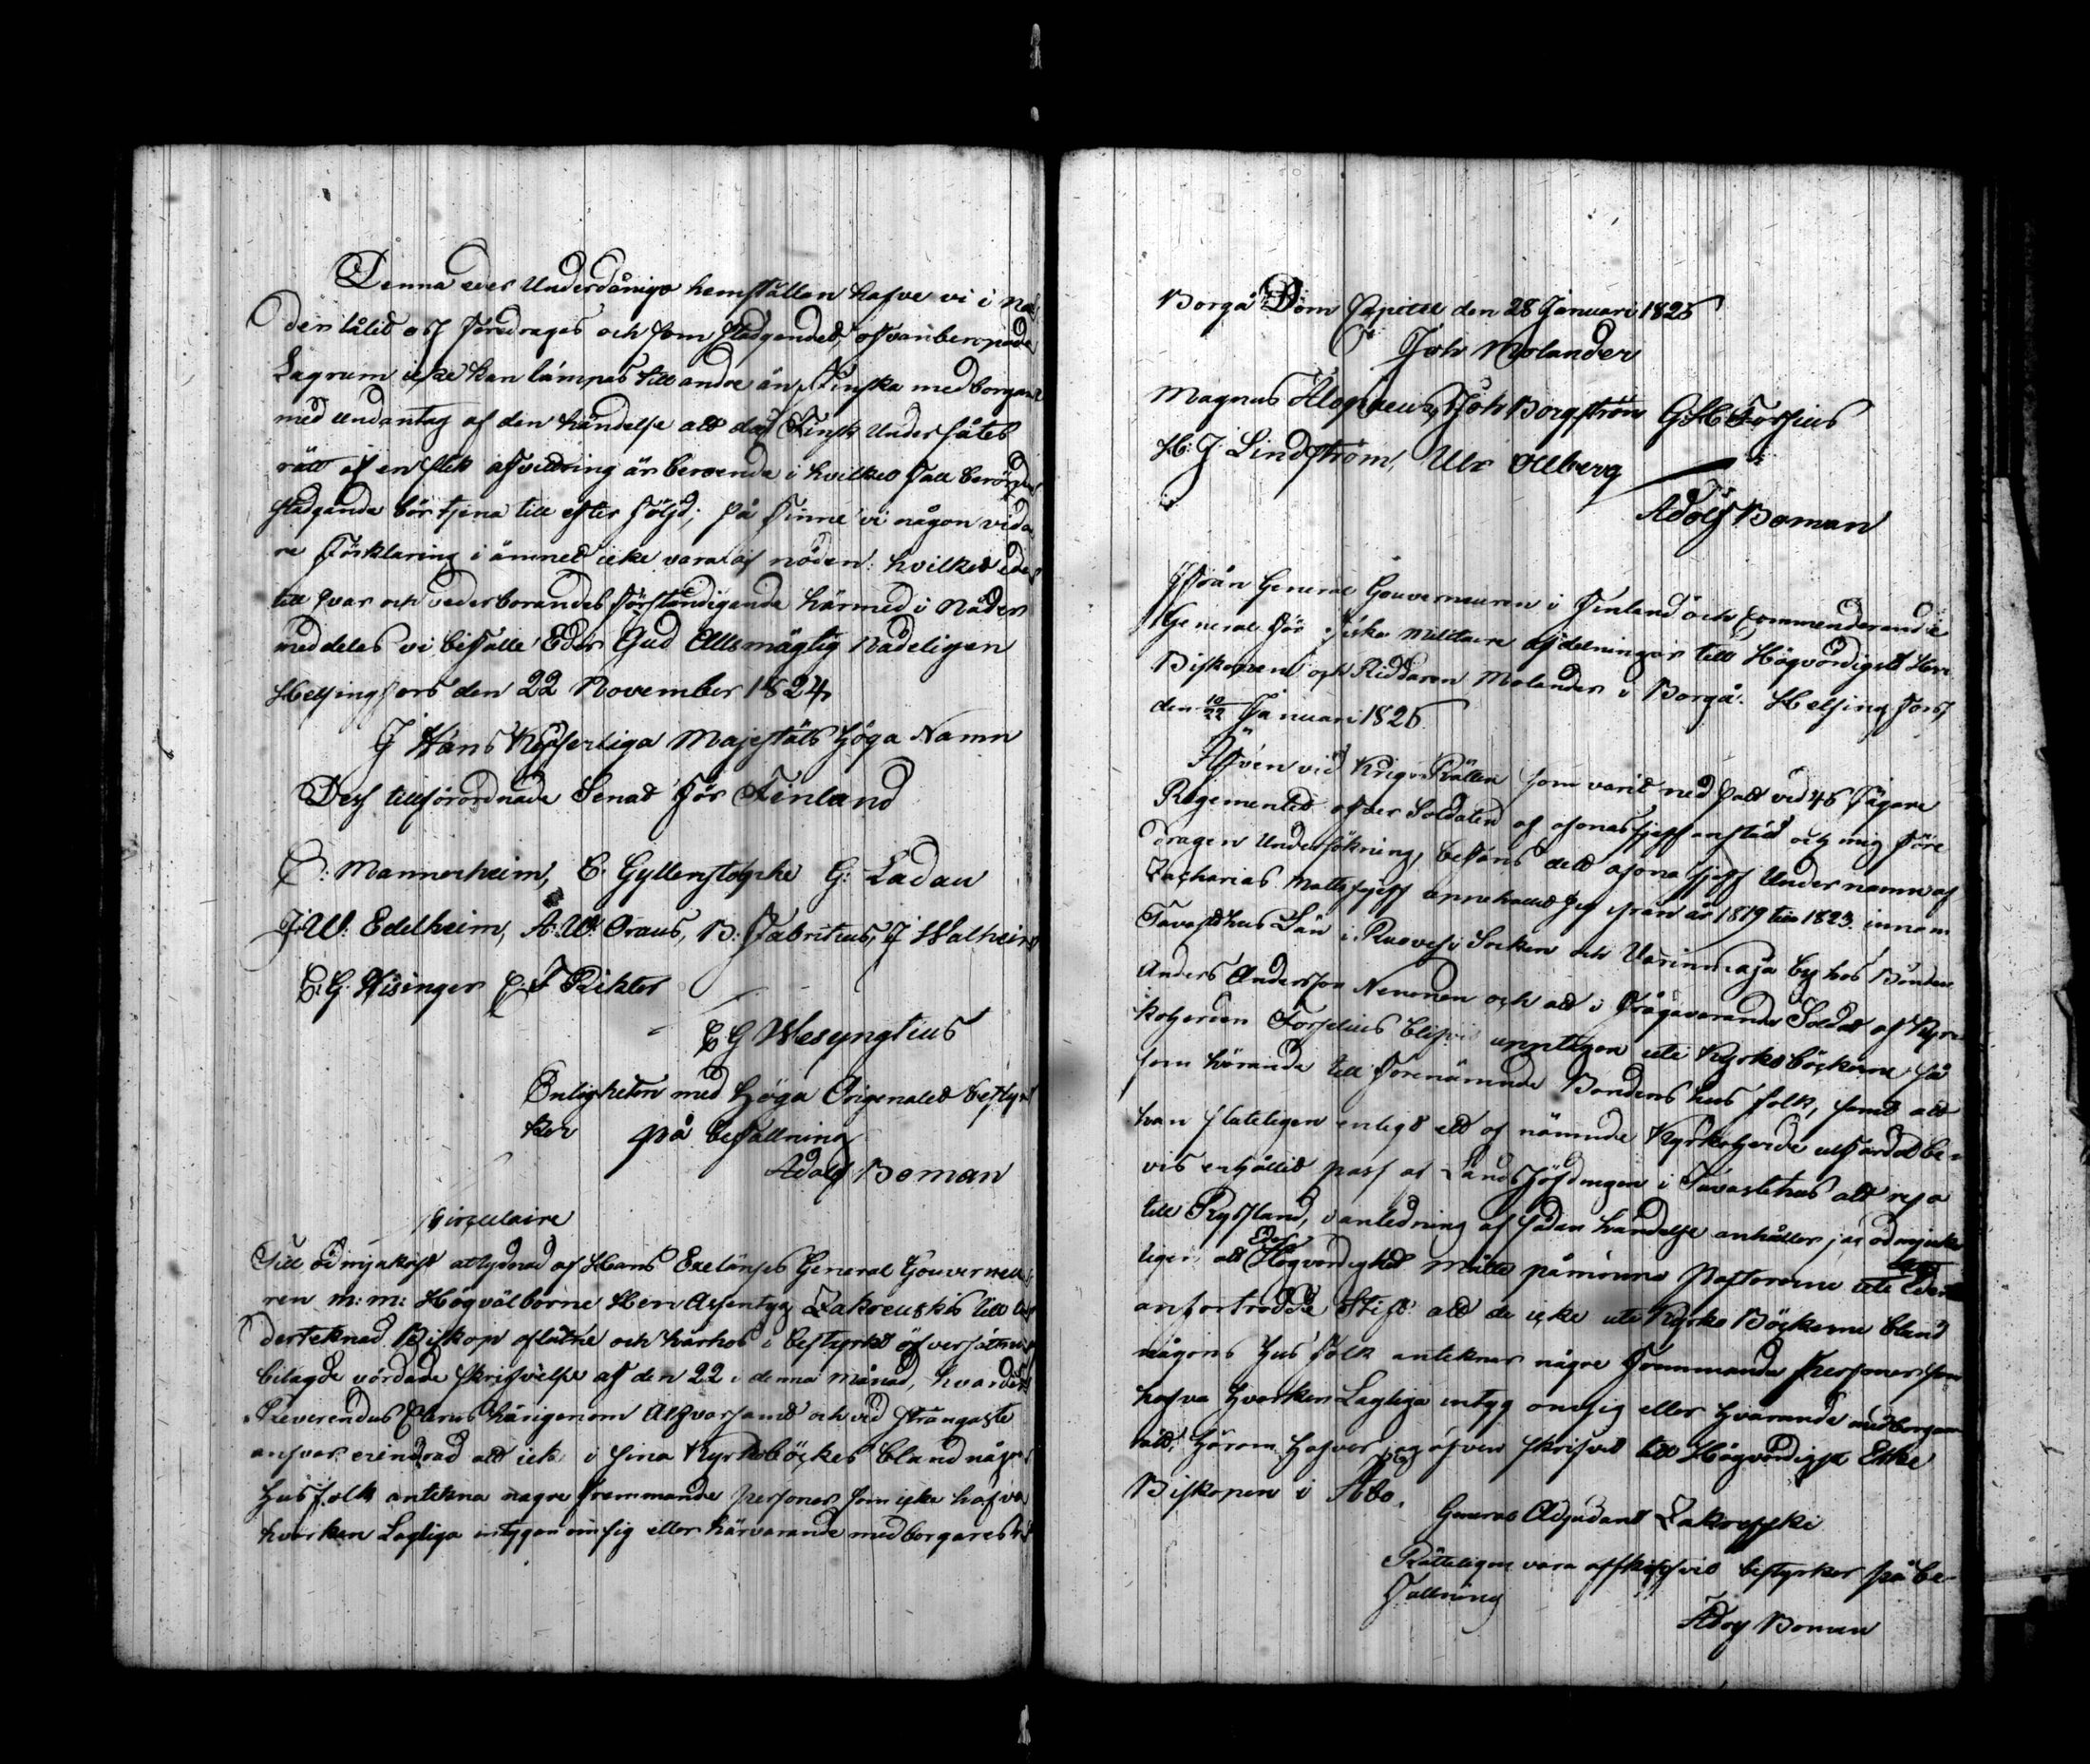 Denna eder Underdånige hemställan hafve vi i Nå
der låtit oss föredragas och som stadgandet ofvanberopade
Lagrum icke kan lämpas till andre än Finska medborgare
med undantag af den händelse att då Finsk Undersåtes
rätt af en slik afvittring är beroende i hvilket fall berörde
stadgande bör tjena till efter följd; så finne vi någon vida
re förklaring i ämnet icke vara af nöden: hvilket eder
till svar och vederborandes förständigande härmed i Nåder
meddelas vi befalle Eder Gud Allsmägtig Nådeligen
Helsingfors den 22 November 1824
I Hans Kejserliga Majestäts Höga Namn
Dess tillförordnade Senat för Finland
C: Mannerheim, C. Gyllenstögke G: Ladau
J: U: Edelheim, A: W: Oraus, B: Fabritius, J Walheim
C: G. Hisinger C: F Rikter
C G Wesyngtius
Enligheten med Höga Orginalet bestyr
ker på befallning
Adolf Boman
Circulaire
Till ödmjukast åtlydnad af Hans Exelänses General Gouverneu
ren m: m: Högvälborne Herr Arsentyg Zakreuskis till un
derteknad Biskop aflåtne och härhos i bestyrkt öfversättning
bilagde vördade skrifvelse af den 22 i denna Månad, hvarder
Reverendus Clerus härigenom Alfvarsamt och vid strängaste
ansvar erindrad att icke i sina Kyrkoböcker bland någre
Husfolk antekna nagre främmande Personer som icke hafva
hvarken Lagliga intygen om sig eller härvarande medborgares
Borgå Dom Capitel den 28 Januari 1825
Joh Molander
Magnus Alopaeus, Joh Borgström G H Forsius
H: J: Lindström, Ulr Ollberg
Adolf Boman
Ifrån General Gouverneuren i Finland och Commenderande
General för finska Militaire afdelningar till Högvördigste Herr
Biskopen och Riddaren Molander i Borgå. Helsingfors
den 10/22 Januari 1825
Äfven vid KrigsRätten som varit ned satt vid 45 Jägare
Regementet öfver Soldaten af oss anstäld och mig före
dragen Undersökning, befans att Under namn af
Zacharias Mattsson annehållit sig ifrån år 1819 till 1823. innom
Tavasthus Län i Ruovesi Socken och Wärinmaja by hos Bonden
Anders Andersson Nenonen och att i frågavarande Soldat af Kyr
koherden Forselius blifvit upptagen uti Kyrkoböckerne så
som hörande till förenämnde Bondens hus folk, samt att
han slutligen enligt ett af nämnde Kyrkoherde utfärdat be-
vis erhållit pass af Landshöfdingen i Tavastehus att resa
till Ryssland, i anledning af sådan händelse anhåller jag ödmjuke
ligen, att Eders Högvördighet måtte påminna Pastorerne uti Edert
anförtrodde Stift att de icke uti Kyrko Böckerne bland
någons Hus folk antekner någre främmande Personer som
hafva hvarken Lagliga intyg om sig eller hvarande medborgare
rätt, Härom hafver jag äfven skrifvit till Högvördigste Erke
Biskopen i Åbo.
General Adjudant Zakrefski
Rätteligen vara affskrifvit bestyrker på be-
fallning
Adolf Boman